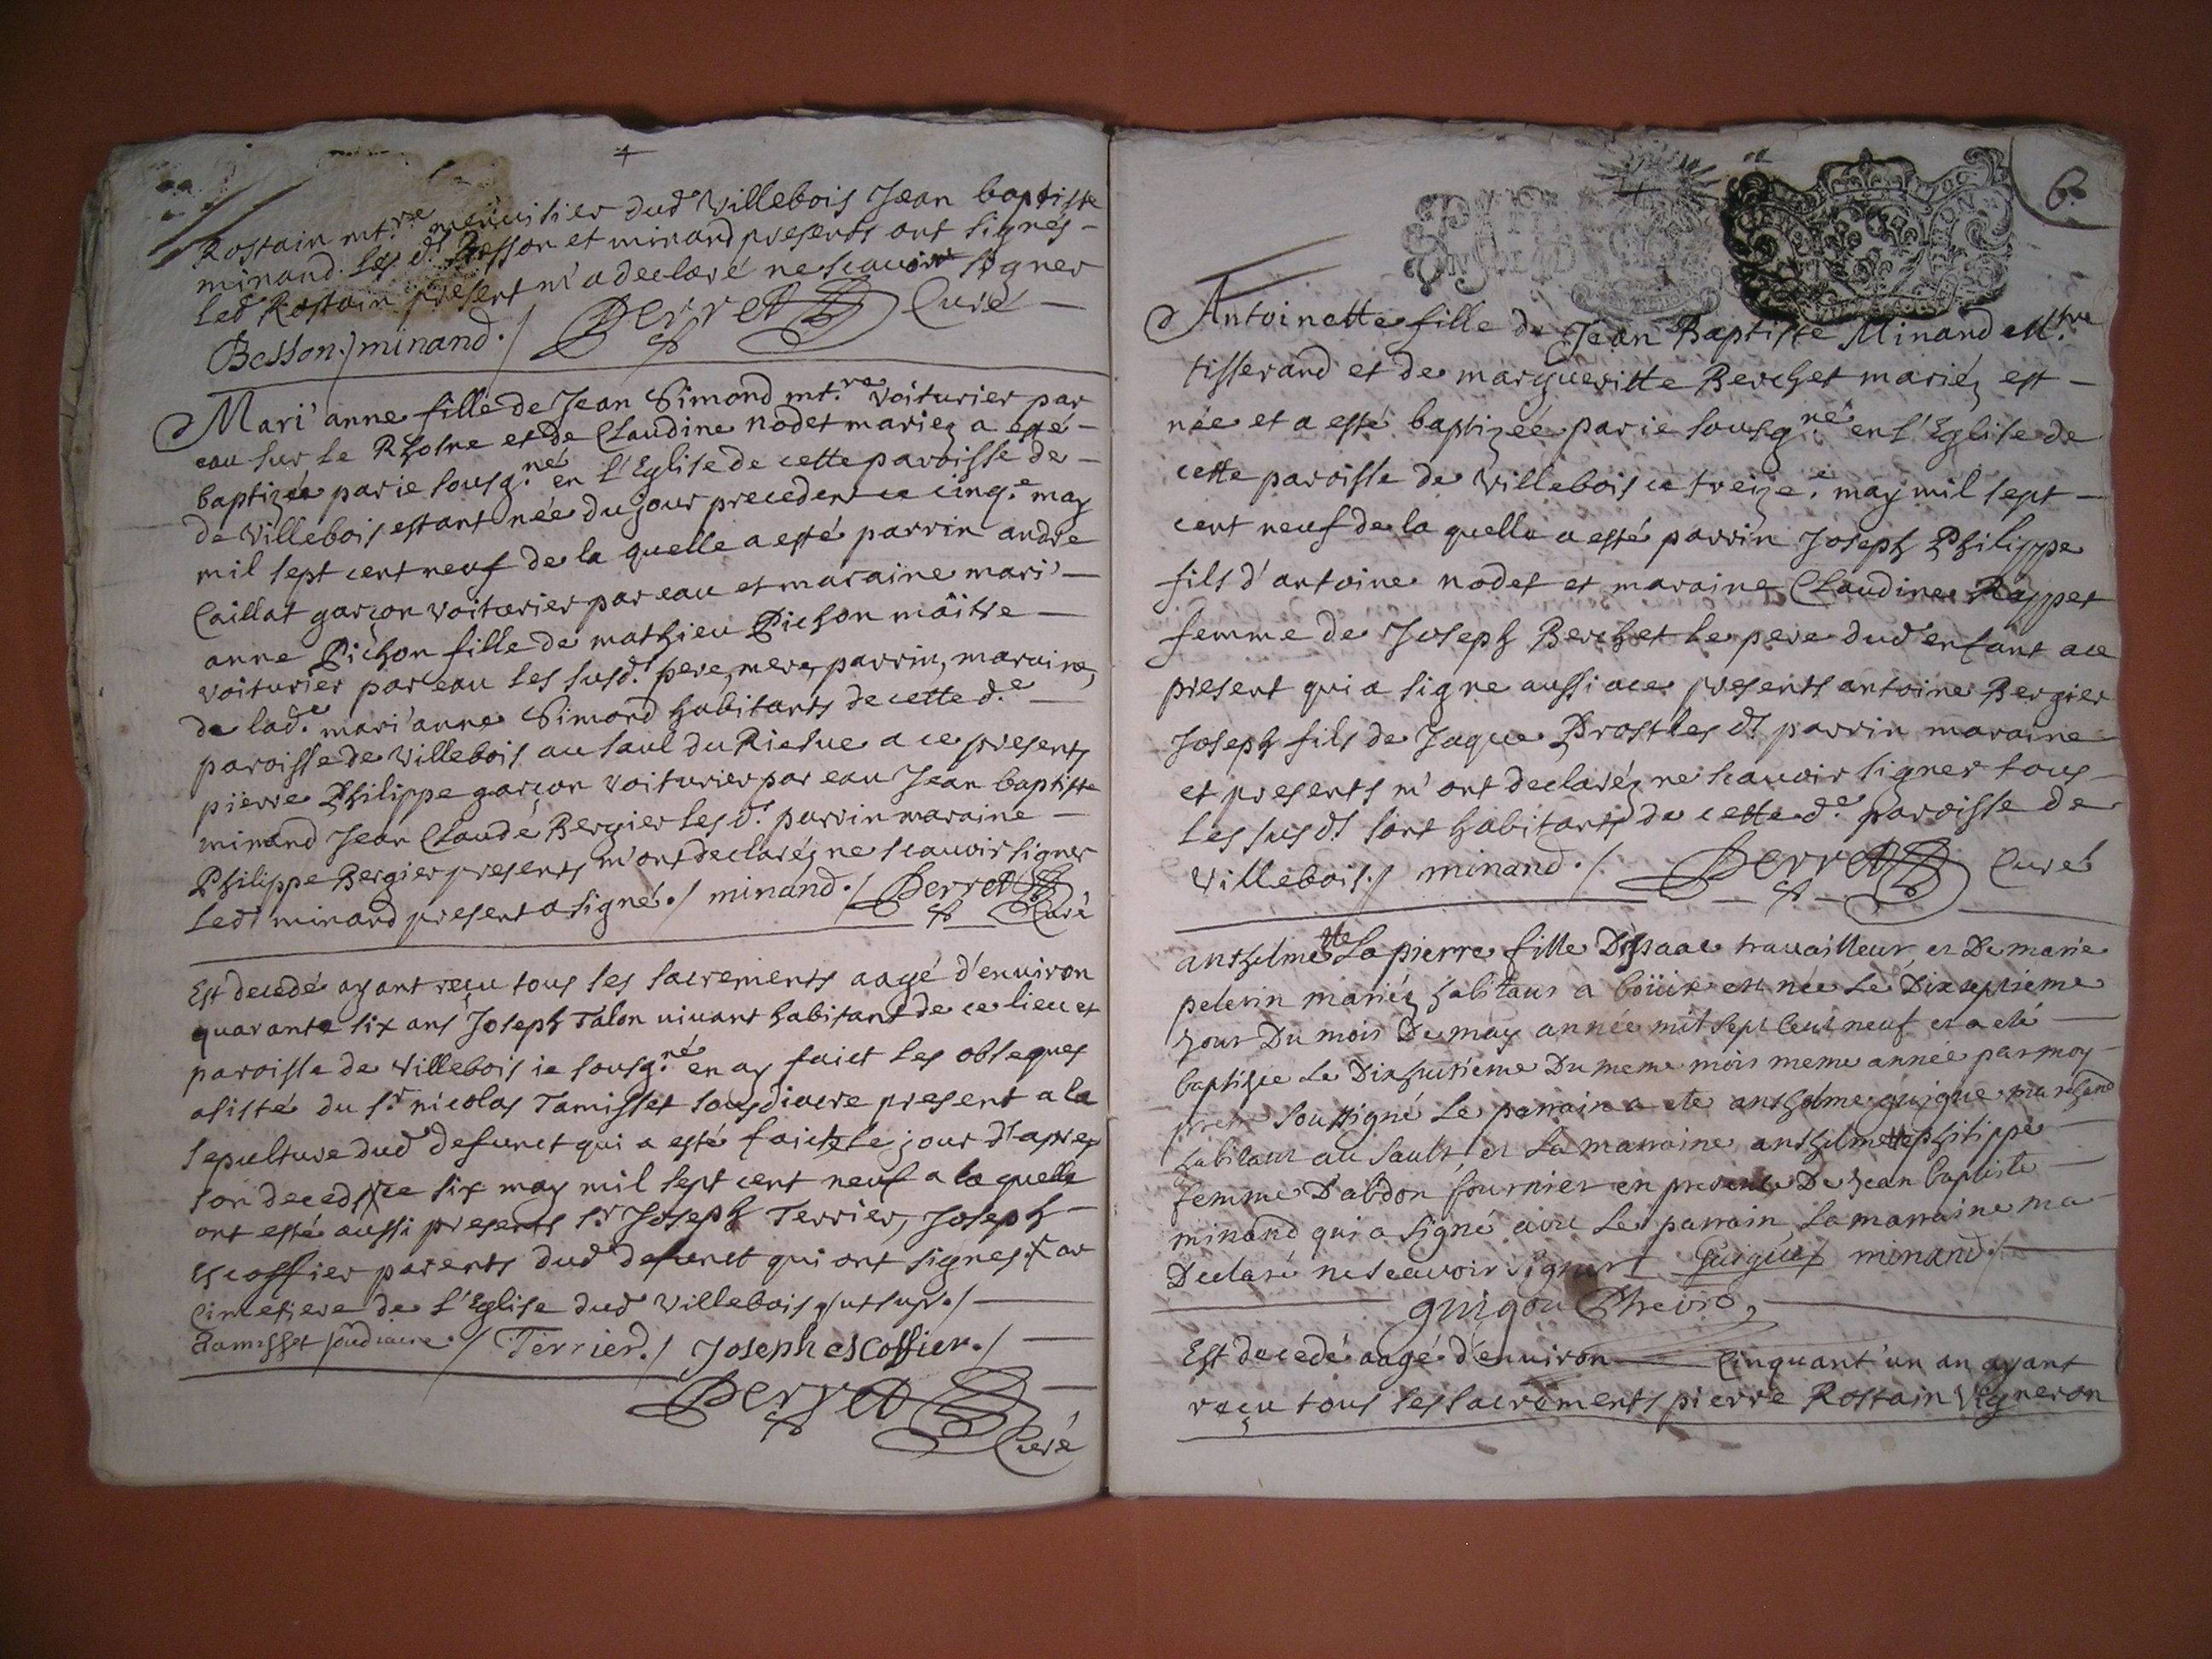 Rostain mt.re menuisier dud villebois Jean baptiste
minand. Les d.t Besson et minand presents ont signés
led Rostain present m'a declaré ne scauoir signer
Besson./ minand./ Perret Curé
Mari'anne fille de Jean Simond mt.re voiturier par
eau sur le Rhosne et de Claudine nodet mariez a esté
baptizée par ie sousg.né en l'Eglise de cette paroisse de
de villebois estant née du jour precedent ce cinq.e may
mil sept cent neuf de la quelle a esté parrin andre
Caillat garçon voiturier par eau et maraine mari'
anne Pichon fille de mathieu Pichon maître
voiturier par eau les susd.t pere, mere, parrin, maraine,
de lad.e mari'anne Simond habitants de cette d.e
paroisse de villebois au saul du Riosne a ce presents
pierre Philippe garçon voiturier par eau Jean baptiste
minand Jean Claude Bergier les d.t parrin maraine
Philippe Bergier presents m'ont declaréz ne scauoir signer
led.t minand present a signé./ minand./ Perret Curé
Est decedé ayant reçu tous les sacrements aagé d'enuiron
quarante six ans Joseph Talon uiuant habitant de ce lieu et
paroisse de villebois ie sousg.né en ay faict les obseques
asisté du s.r nicolas Tamisset sousdiacre present a la
sepulture dud defunct qui a esté faicte le jour d'apres
son deceds ce six may mil sept cent neuf a la quelle
ont esté aussi presents s.r Joseph Terrier, Joseph
Escoffier parents dud defunct qui ont signes. x au
Cimetiere de l'Eglise dud villebois ut sup./
Tamisset soudiacre./ Terrier./ Joseph escoffier./
Perret
Curé
6.
Antoinette fille de Jean Baptiste Minand M.tre
tisserand et de margueritte Berchet mariéz est
née et a esté baptizéé par ie sousgné en l'Eglise de
cette paroisse de villebois ce treize.e may mil sept
cent neuf de la quelle a esté parrin Joseph Philippe
fils d'antoine nodet et maraine Claudine Rappet
femme de Joseph Berchet le pere dud enfant a ce
present qui a signe aussi a ce presents antoine Bergier
Joseph fils de Jaque Prost les d.t parrin maraine
et presents m'ont declaréz ne scauoir signer tous
les susd.t sont habitants de cette d.e paroisse de
villebois./ minand./. Perret Curé
anthelmette Lapierre fille D'isaac trauailleur et De marie
pelerin mariéz habitans a boüix est née Le Dixseptieme
jour Du mois De may année mil sept cent neuf et a eté
baptisée Le Dixhuitieme Du meme mois meme année par moy
pretre soussigné Le parrain a ete anthelme guigue marchand
habitant au Sault, et La marraine anthelmette philippe
femme D'abdon fournier en presence De jean baptiste
minand qui a signé auec Le parrain La marraine ma
Declaré ne scauoir signer Guigue minand./
guigou
Est decedé aagé d'enuiron Cinquant'un an ayant
reçu tous les sacrements pierre Rostain Vigneron